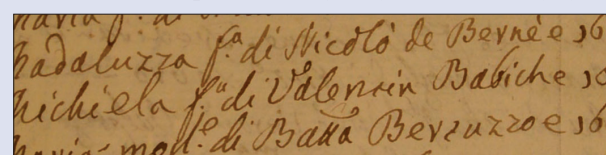 Maria f.ª di
Madaluzza f.ª di Nicolò de Bernè e 16
Michiela f.ª di Valentin Babiche 16
Maria mog.e di Batta Berzuzzo e 16